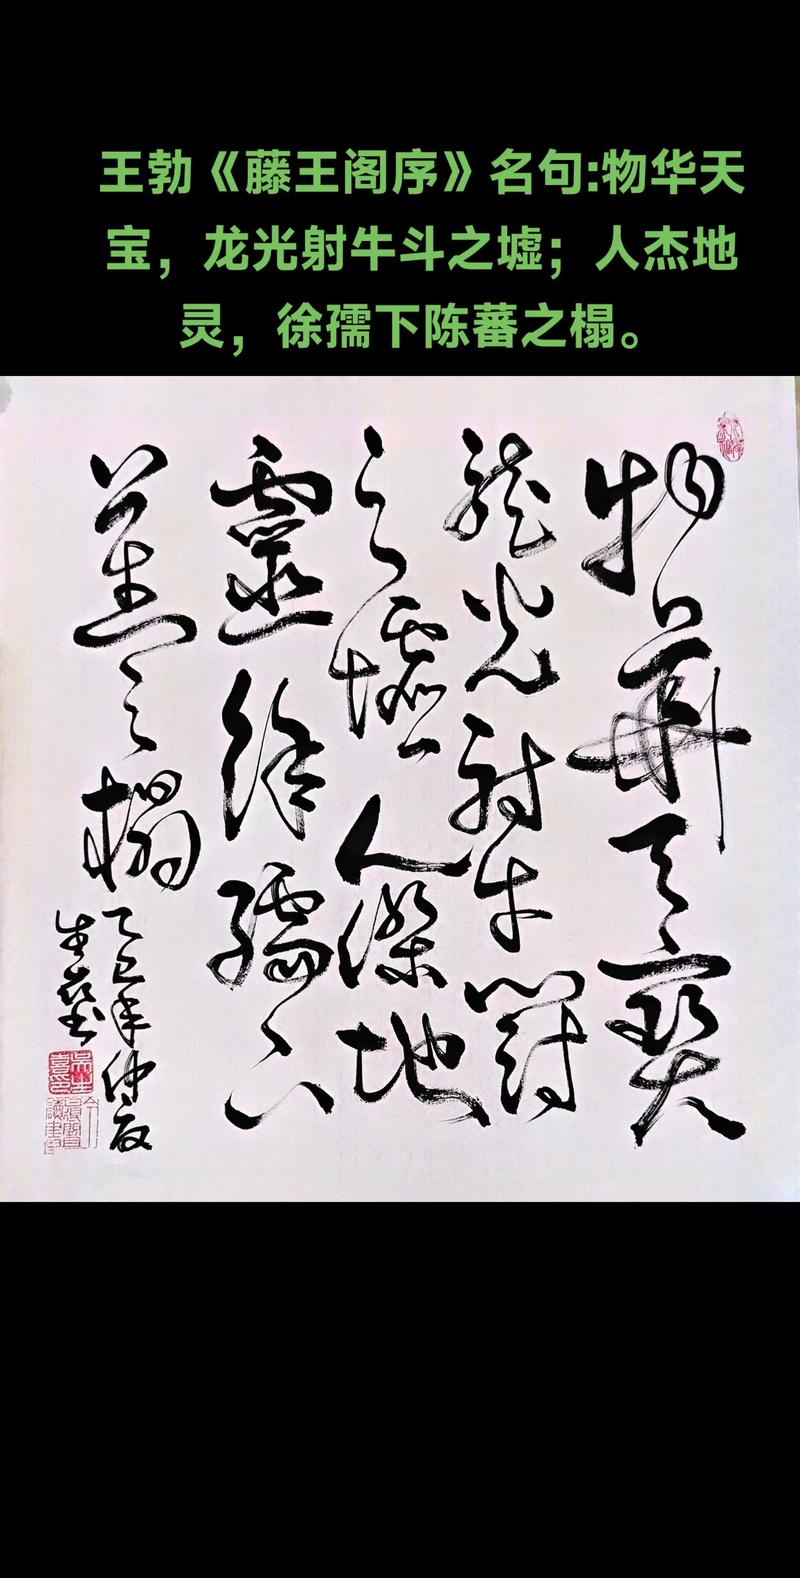 王勃《藤王阁序》名句:物华天
宝，龙光射牛斗之墟；人杰地
灵，徐孺下陈蕃之榻。
物華天寶
龍光射牛鬪
之墟人傑地
靈徐孺下
蕃之榻
乙巳年仲夏
生喜书